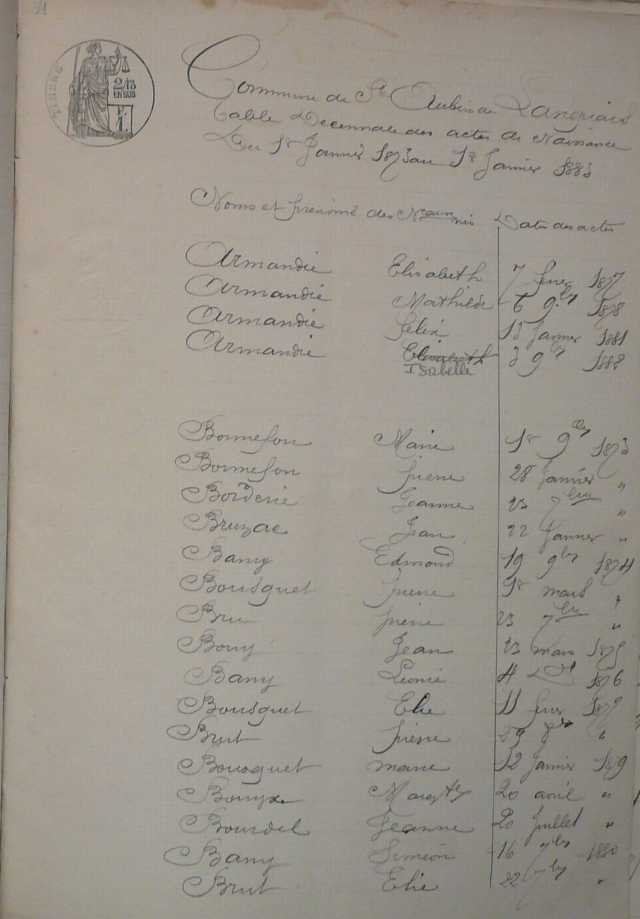 TIMBRE
2/10
EN SUS
Commune de St Aubin de Langriais
Table Décennale des actes de Naissance
Du 1er Janvier 1873 au 1er Janvier 1883
Noms et prénoms des Nouveaux nés Dates des actes
Armandie Elisabeth 7 1877
Armandie Mathilde 6 9bre 1878
Armandie Felix 15 Janvier 1881
Armandie Elisabeth 3 9bre 1882
Isabelle
Bonnefon Marie 1er 9bre 1873
Bonnefon Pierre 28 Janvier "
Borderie Jeanne 23 7bre "
Bruzac Jean 22 Janvier "
Bamy Edmond 19 9bre 1874
Bousquet Pierre 1er mars "
Bru Pierre 23 7bre "
Bouy Jean 23 mars 1875
Bamy Léonie 4 1876
Bousquet Elie 11 1877
Brut Pierre 29 "
Bousquet marie 12 Janvier 1879
20 avril "
Bourdel Jeanne 20 Juillet "
Bamy Siméon 16 7bre 1880
Brut Elie 22 7bre "